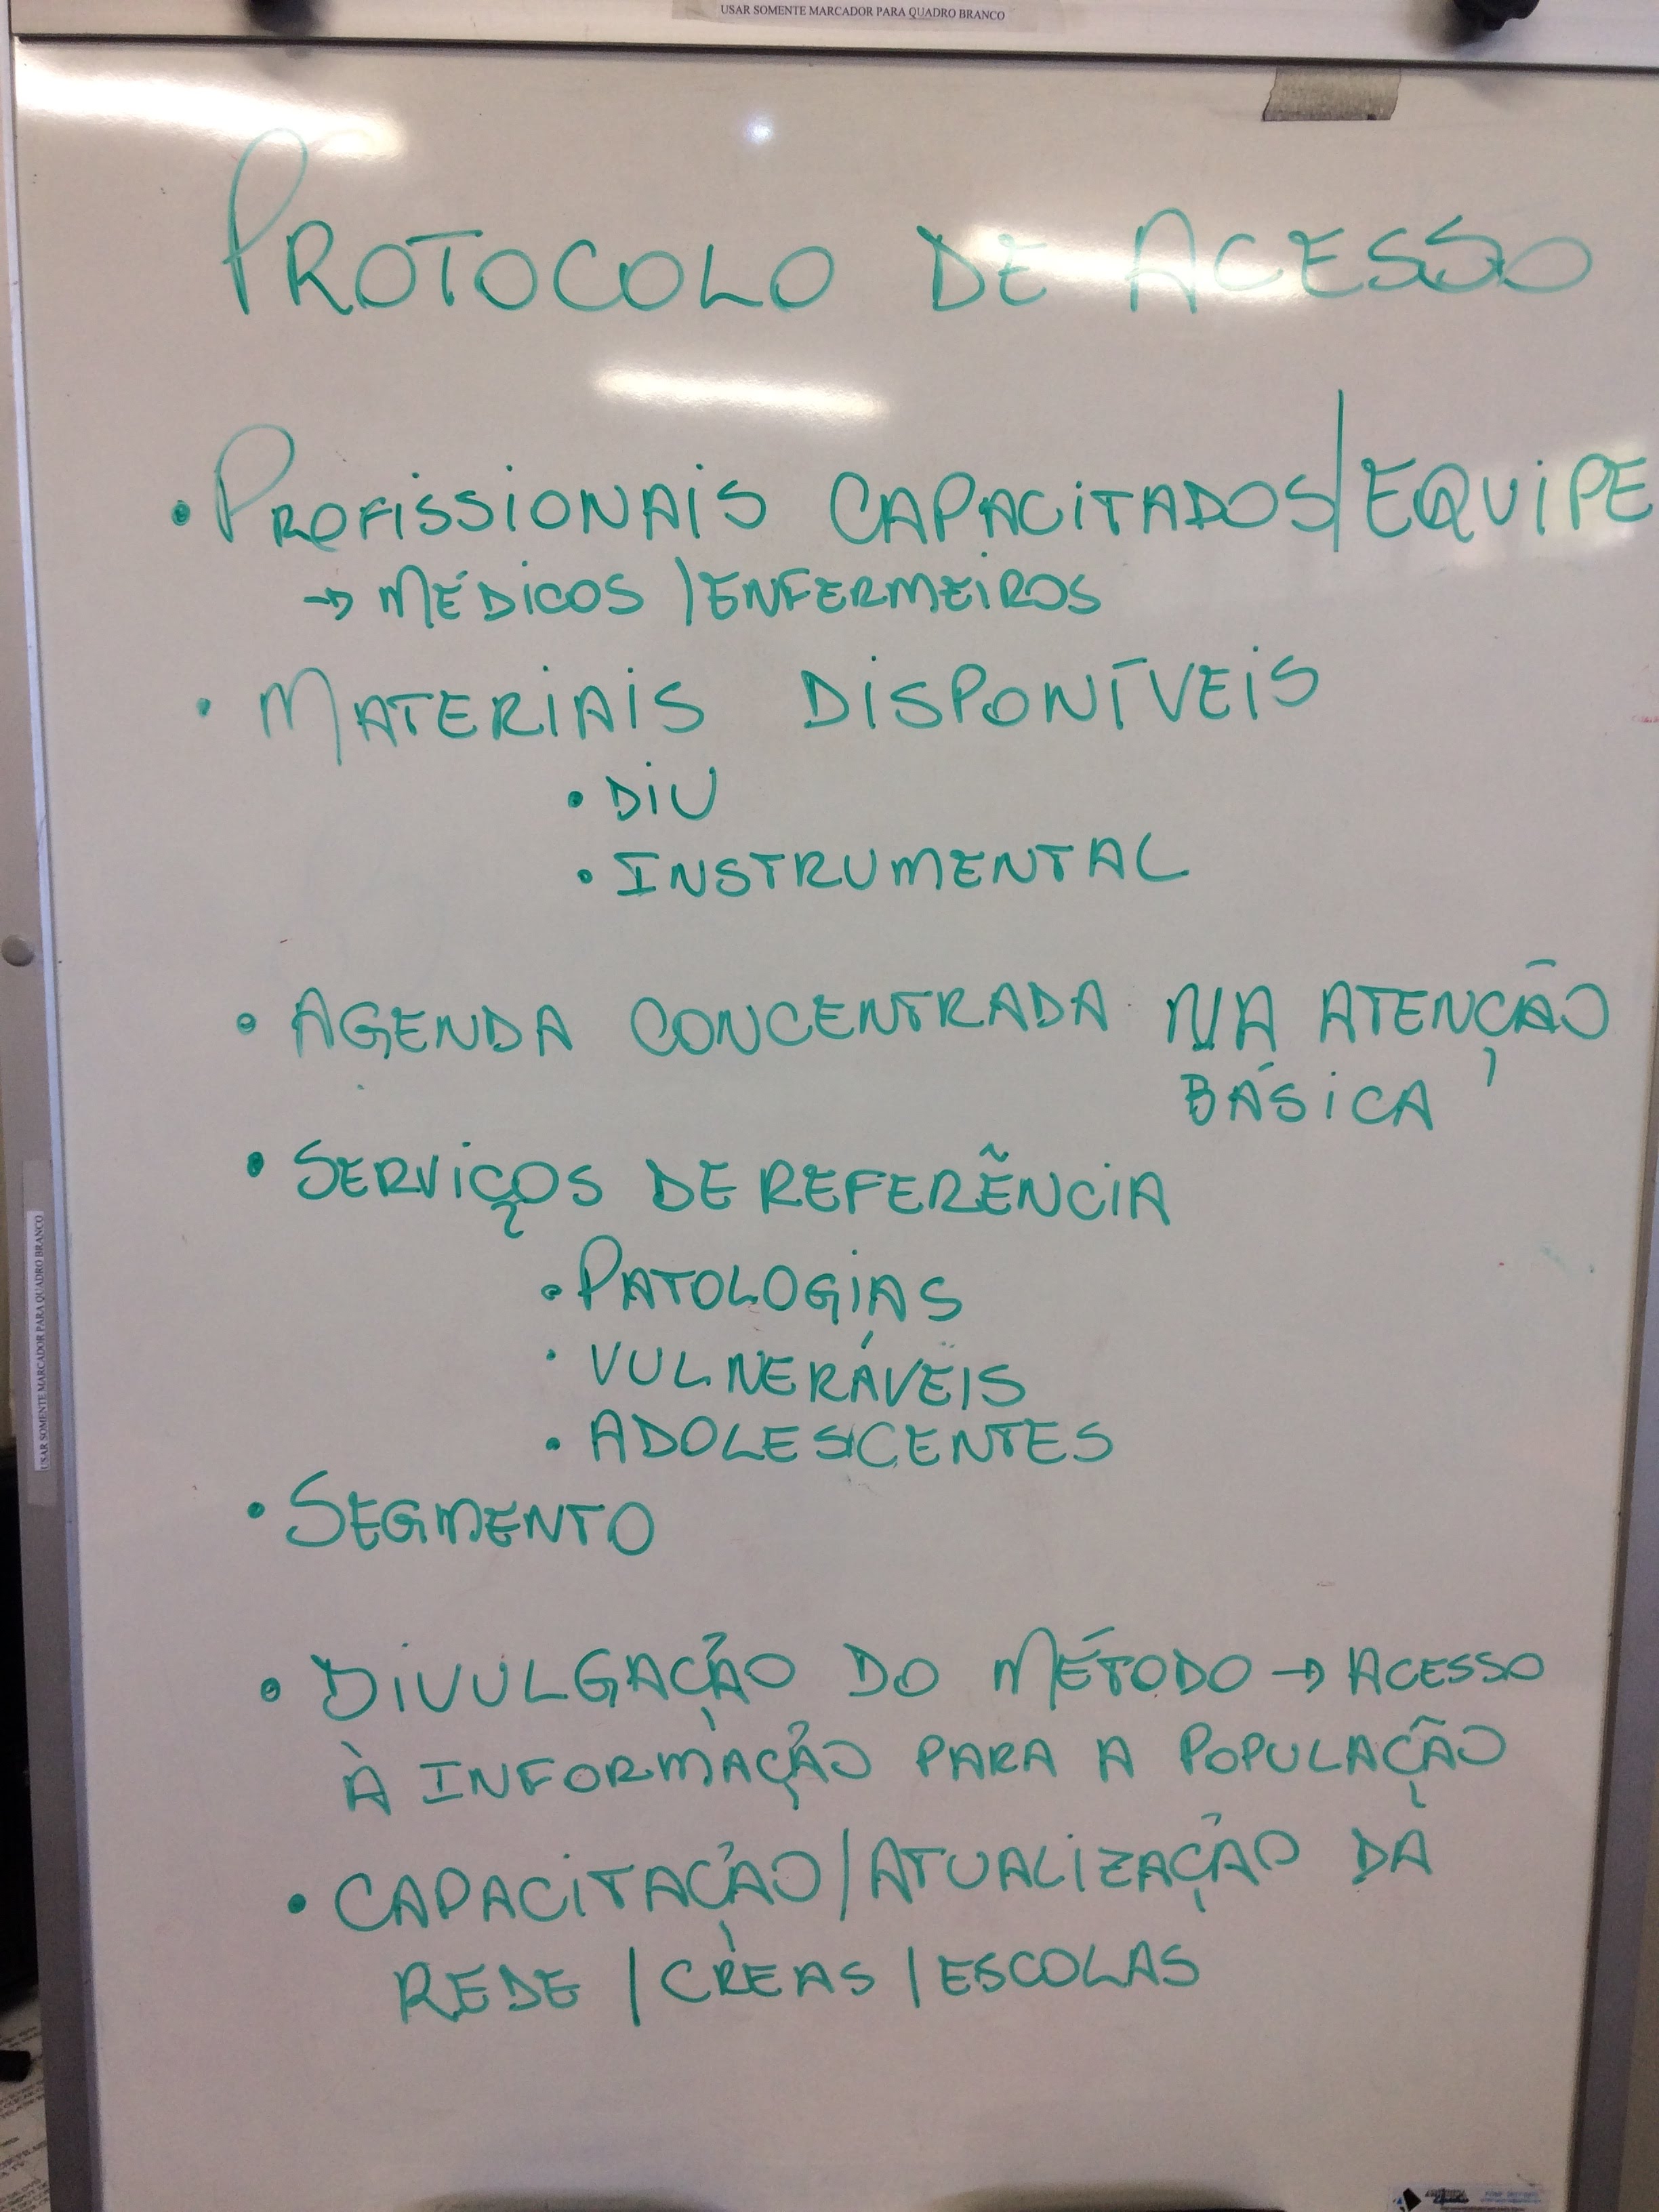 USAR SOMENTE MARCADOR PARA QUADRO BRANCO
PROTOCOLO DE ACESSO
• PROFISSIONAIS CAPACITADOS/EQUIPE
→ MÉDICOS /ENFERMEIROS
• MATERIAIS DISPONÍVEIS
• DIU
• INSTRUMENTAL
• AGENDA CONCENTRADA NA ATENÇÃO
BÁSICA
• SERVIÇOS DE REFERÊNCIA
• PATOLOGIAS
• VULNERÁVEIS
• ADOLESCENTES
• SEGMENTO
• DIVULGAÇÃO DO MÉTODO → ACESSO
À INFORMAÇÃO PARA A POPULAÇÃO
• CAPACITAÇÃO/ATUALIZAÇÃO DA
REDE / CREAS / ESCOLAS
USAR SOMENTE MARCADOR PARA QUADRO BRANCO